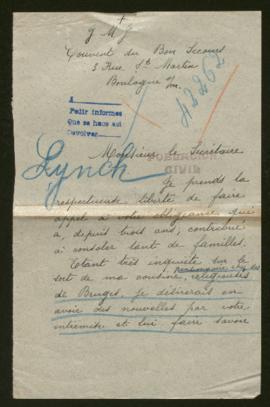 J M J
Couvent du Bon Secours
3 Rue St Martin
Boulogne s/m.
A
Pedir informes
Que se haca aut
Devolver
Lynch
POBLACION
CIVIL
Monsieur le Secrétaire
Je prends la
respectueuse liberté de faire
appel à votre obligeance qui
a, depuis trois ans, contribué
à consoler tant de familles.
Etant très inquiète sur le
sort de ma cousine, religieuse
de Bruges, je désirerais en
avoir des nouvelles par votre
entremise et lui faire savoir